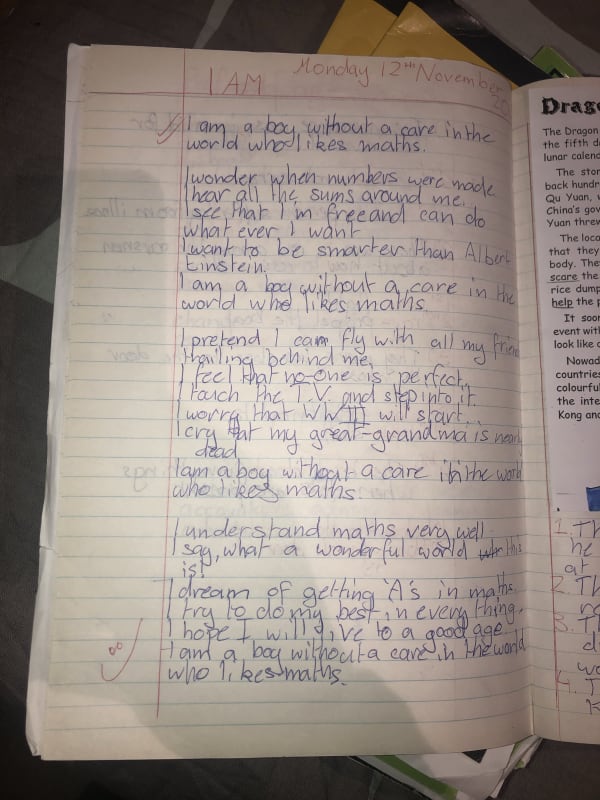 I AM
Monday 12th November
20
I am a boy without a care in the
world who likes maths.
I wonder when numbers were made
I hear all the sums around me.
I see that I'm free and can do
what ever I want
I want to be smarter than Albert
Einstein.
I am a boy without a care in the
world who likes maths.
I pretend I can fly with all my friend
trailing behind me.
I feel that no-one is perfect,
I touch the T.V. and step into it.
I worry that WW III will start.
I cry that my great-grandma is nearly
dead
I am a boy without a care in the world
who likes maths.
I understand maths very well
I say, what a wonderful world this
is!
I dream of getting 'A's in maths.
I try to do my best in every thing.
I hope I will live to a good age
I am a boy without a care in the world
who likes maths.
Drago
The Dragon
the fifth d
lunar calend
The stor
back hundr
Qu Yuan, w
China's gov
Yuan threw
The loca
that they
body. The
scare the
rice dump
help the p
It soon
event with
look like d
Nowad
countries
colourfu
the inte
Kong and
1. Th
he
at
2. Th
3. T
di
wa
4. T
K